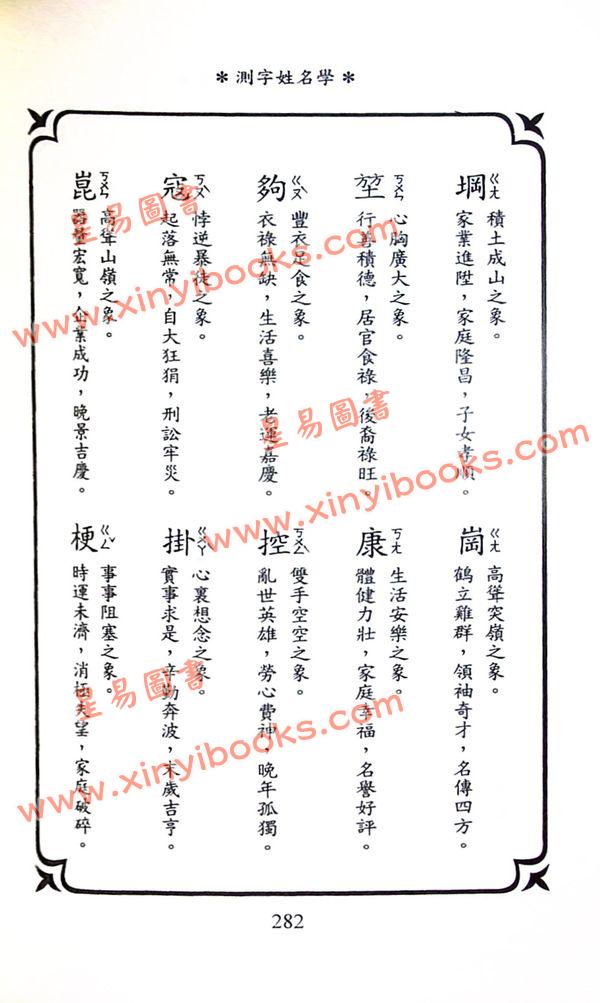 ＊測字姓名學＊
堈 ㄍㄤ 積土成山之象。
家業進陞，家庭隆昌，子女孝順。
堃 ㄎㄨㄣ 心胸廣大之象。
行善積德，居官食祿，後裔祿旺。
夠 ㄍㄡˋ 豐衣足食之象。
衣祿無缺，生活喜樂，老運嘉慶。
寇 ㄎㄡˋ 悖逆暴徒之象。
起落無常，自大狂狷，刑訟牢災。
崑 ㄎㄨㄣ 高聳山嶺之象。
器量宏寬，企業成功，晚景吉慶。
崗 ㄍㄤ 高聳突嶺之象。
鶴立雞群，領袖奇才，名傳四方。
康 ㄎㄤ 生活安樂之象。
體健力壯，家庭幸福，名譽好評。
控 ㄎㄨㄥˋ 雙手空空之象。
亂世英雄，勞心費神，晚年孤獨。
掛 ㄍㄨㄚˋ 心裏想念之象。
實事求是，辛勤奔波，末歲吉亨。
梗 ㄍㄥˇ 事事阻塞之象。
時運未濟，消極失望，家庭破碎。
282
星易圖書
www.xinyibooks.com
星易圖書
www.xinyibooks.com
星易圖書
www.xinyibooks.com